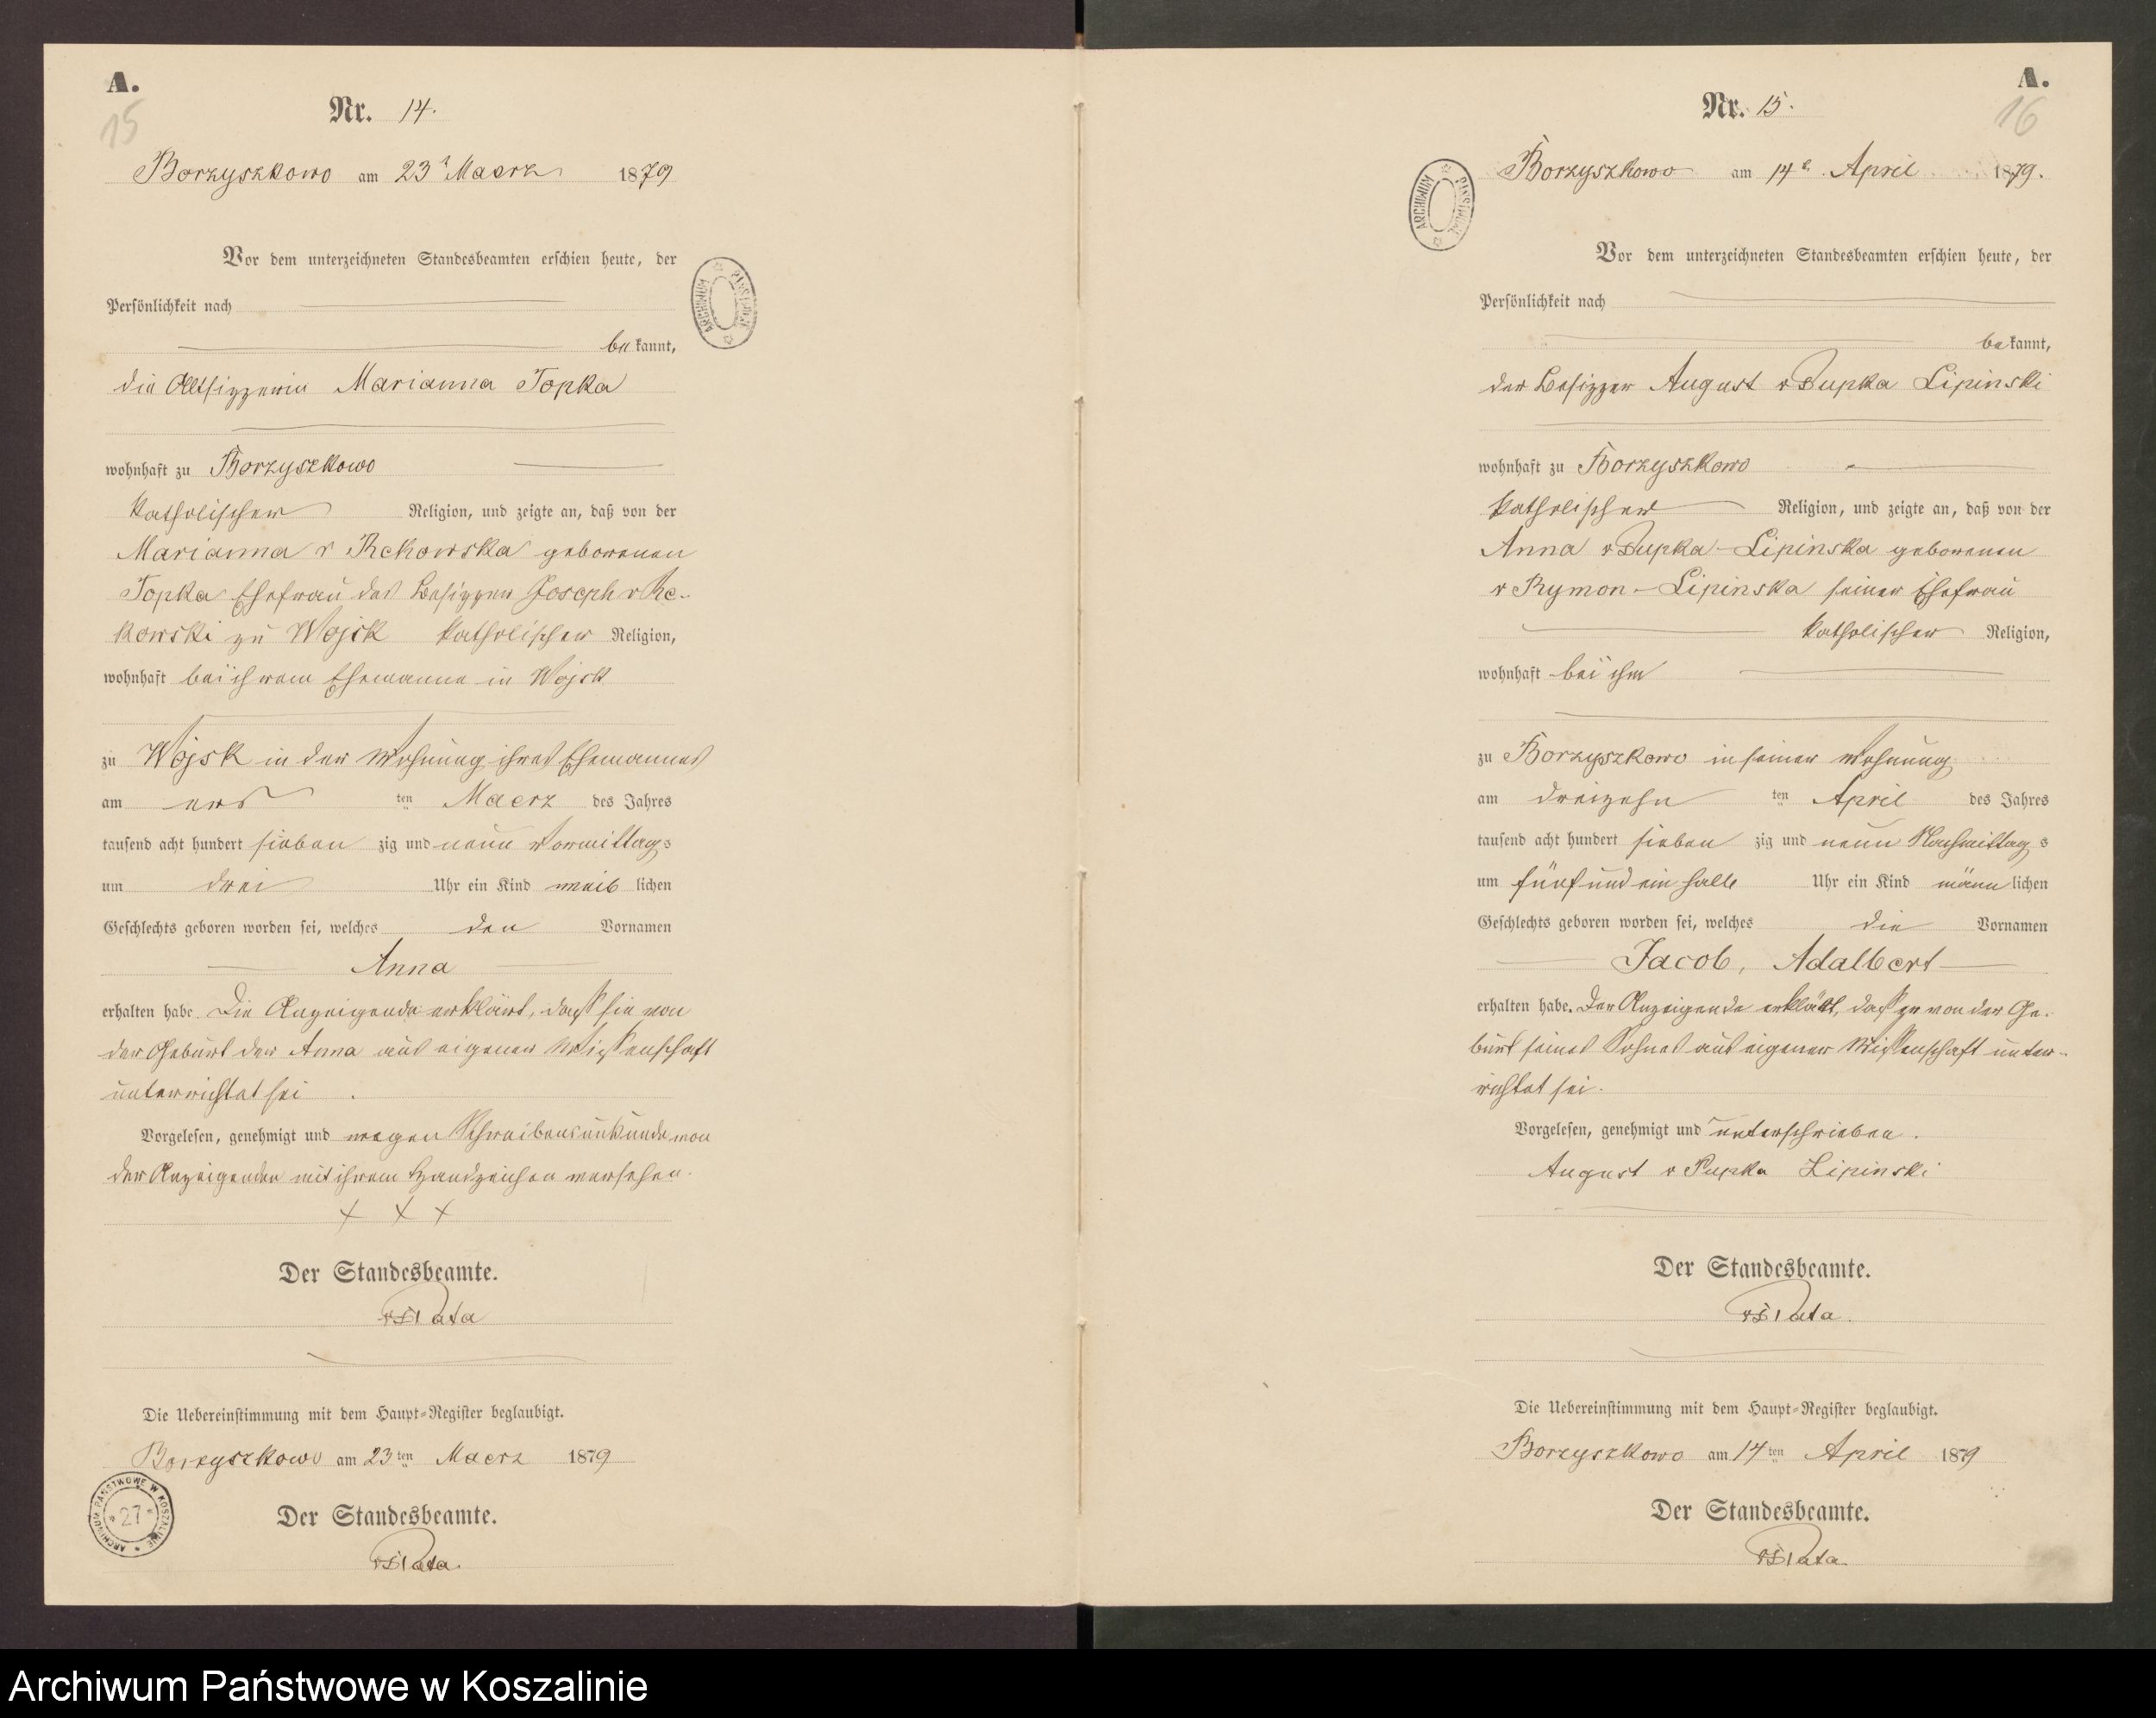 A.
15
Nr. 14.
Borzyszkowo am 23t Maerz 1879
Vor dem unterzeichneten Standesbeamten erschien heute, der
Persönlichkeit nach
bekannt,
die Altsizzerin Marianna Topka
wohnhaft zu Borzyszkowo
katholischer Religion, und zeigte an, daß von der
Marianna v Rekowska geborenen
Topka Ehefrau des Besizzer Joseph v Re-
kowski zu Wojsk katholischer Religion,
wohnhaft bei ihrem Ehemanne in Wojsk
zu Wojsk in der Wohnung ihres Ehemannes
am ers ten Maerz des Jahres
tausend acht hundert sieben zig und neun Vormittags
um drei Uhr ein Kind weib lichen
Geschlechts geboren worden sei, welches den Vornamen
Anna
erhalten habe. Die Anzeigende erklärt, dass sie von
der Geburt der Anna aus eigener Wissenschaft
unterrichtet sei.
Vorgelesen, genehmigt und wegen Schreibensunkunde von
der Anzeigenden mit ihrem Handzeichen versehen.
+ + +
Der Standesbeamte.
Die Uebereinstimmung mit dem Haupt-Register beglaubigt.
Borzyszkowo am 23ten Maerz 1879
Der Standesbeamte.
ARCHIWUM PAŃSTWOWE W KOSZALINIE * 27 *
ARCHIWUM PAŃSTWOWE
A.
16
Nr. 15.
Borzyszkowo am 14t April 1879.
Vor dem unterzeichneten Standesbeamten erschien heute, der
Persönlichkeit nach
bekannt,
der Besizzer August v Pupka Lipinski
wohnhaft zu Borzyszkowo
katholischer Religion, und zeigte an, daß von der
Anna v Pupka-Lipinska geborenen
v Rymon-Lipinska seiner Ehefrau
katholischer Religion,
wohnhaft bei ihm
zu Borzyszkowo in seiner Wohnung
am dreizehn ten April des Jahres
tausend acht hundert sieben zig und neun Nachmittags
um fünf und ein halb Uhr ein Kind männ lichen
Geschlechts geboren worden sei, welches die Vornamen
Jacob, Adalbert
erhalten habe. Der Anzeigende erklärt, dass er von der Ge-
burt seines Sohnes aus eigener Wissenschaft unter-
richtet sei.
Vorgelesen, genehmigt und unterschrieben.
August v Pupka Lipinski
Der Standesbeamte.
Die Uebereinstimmung mit dem Haupt-Register beglaubigt.
Borzyszkowo am 14ten April 1879
Der Standesbeamte.
ARCHIWUM PAŃSTWOWE
Archiwum Państwowe w Koszalinie